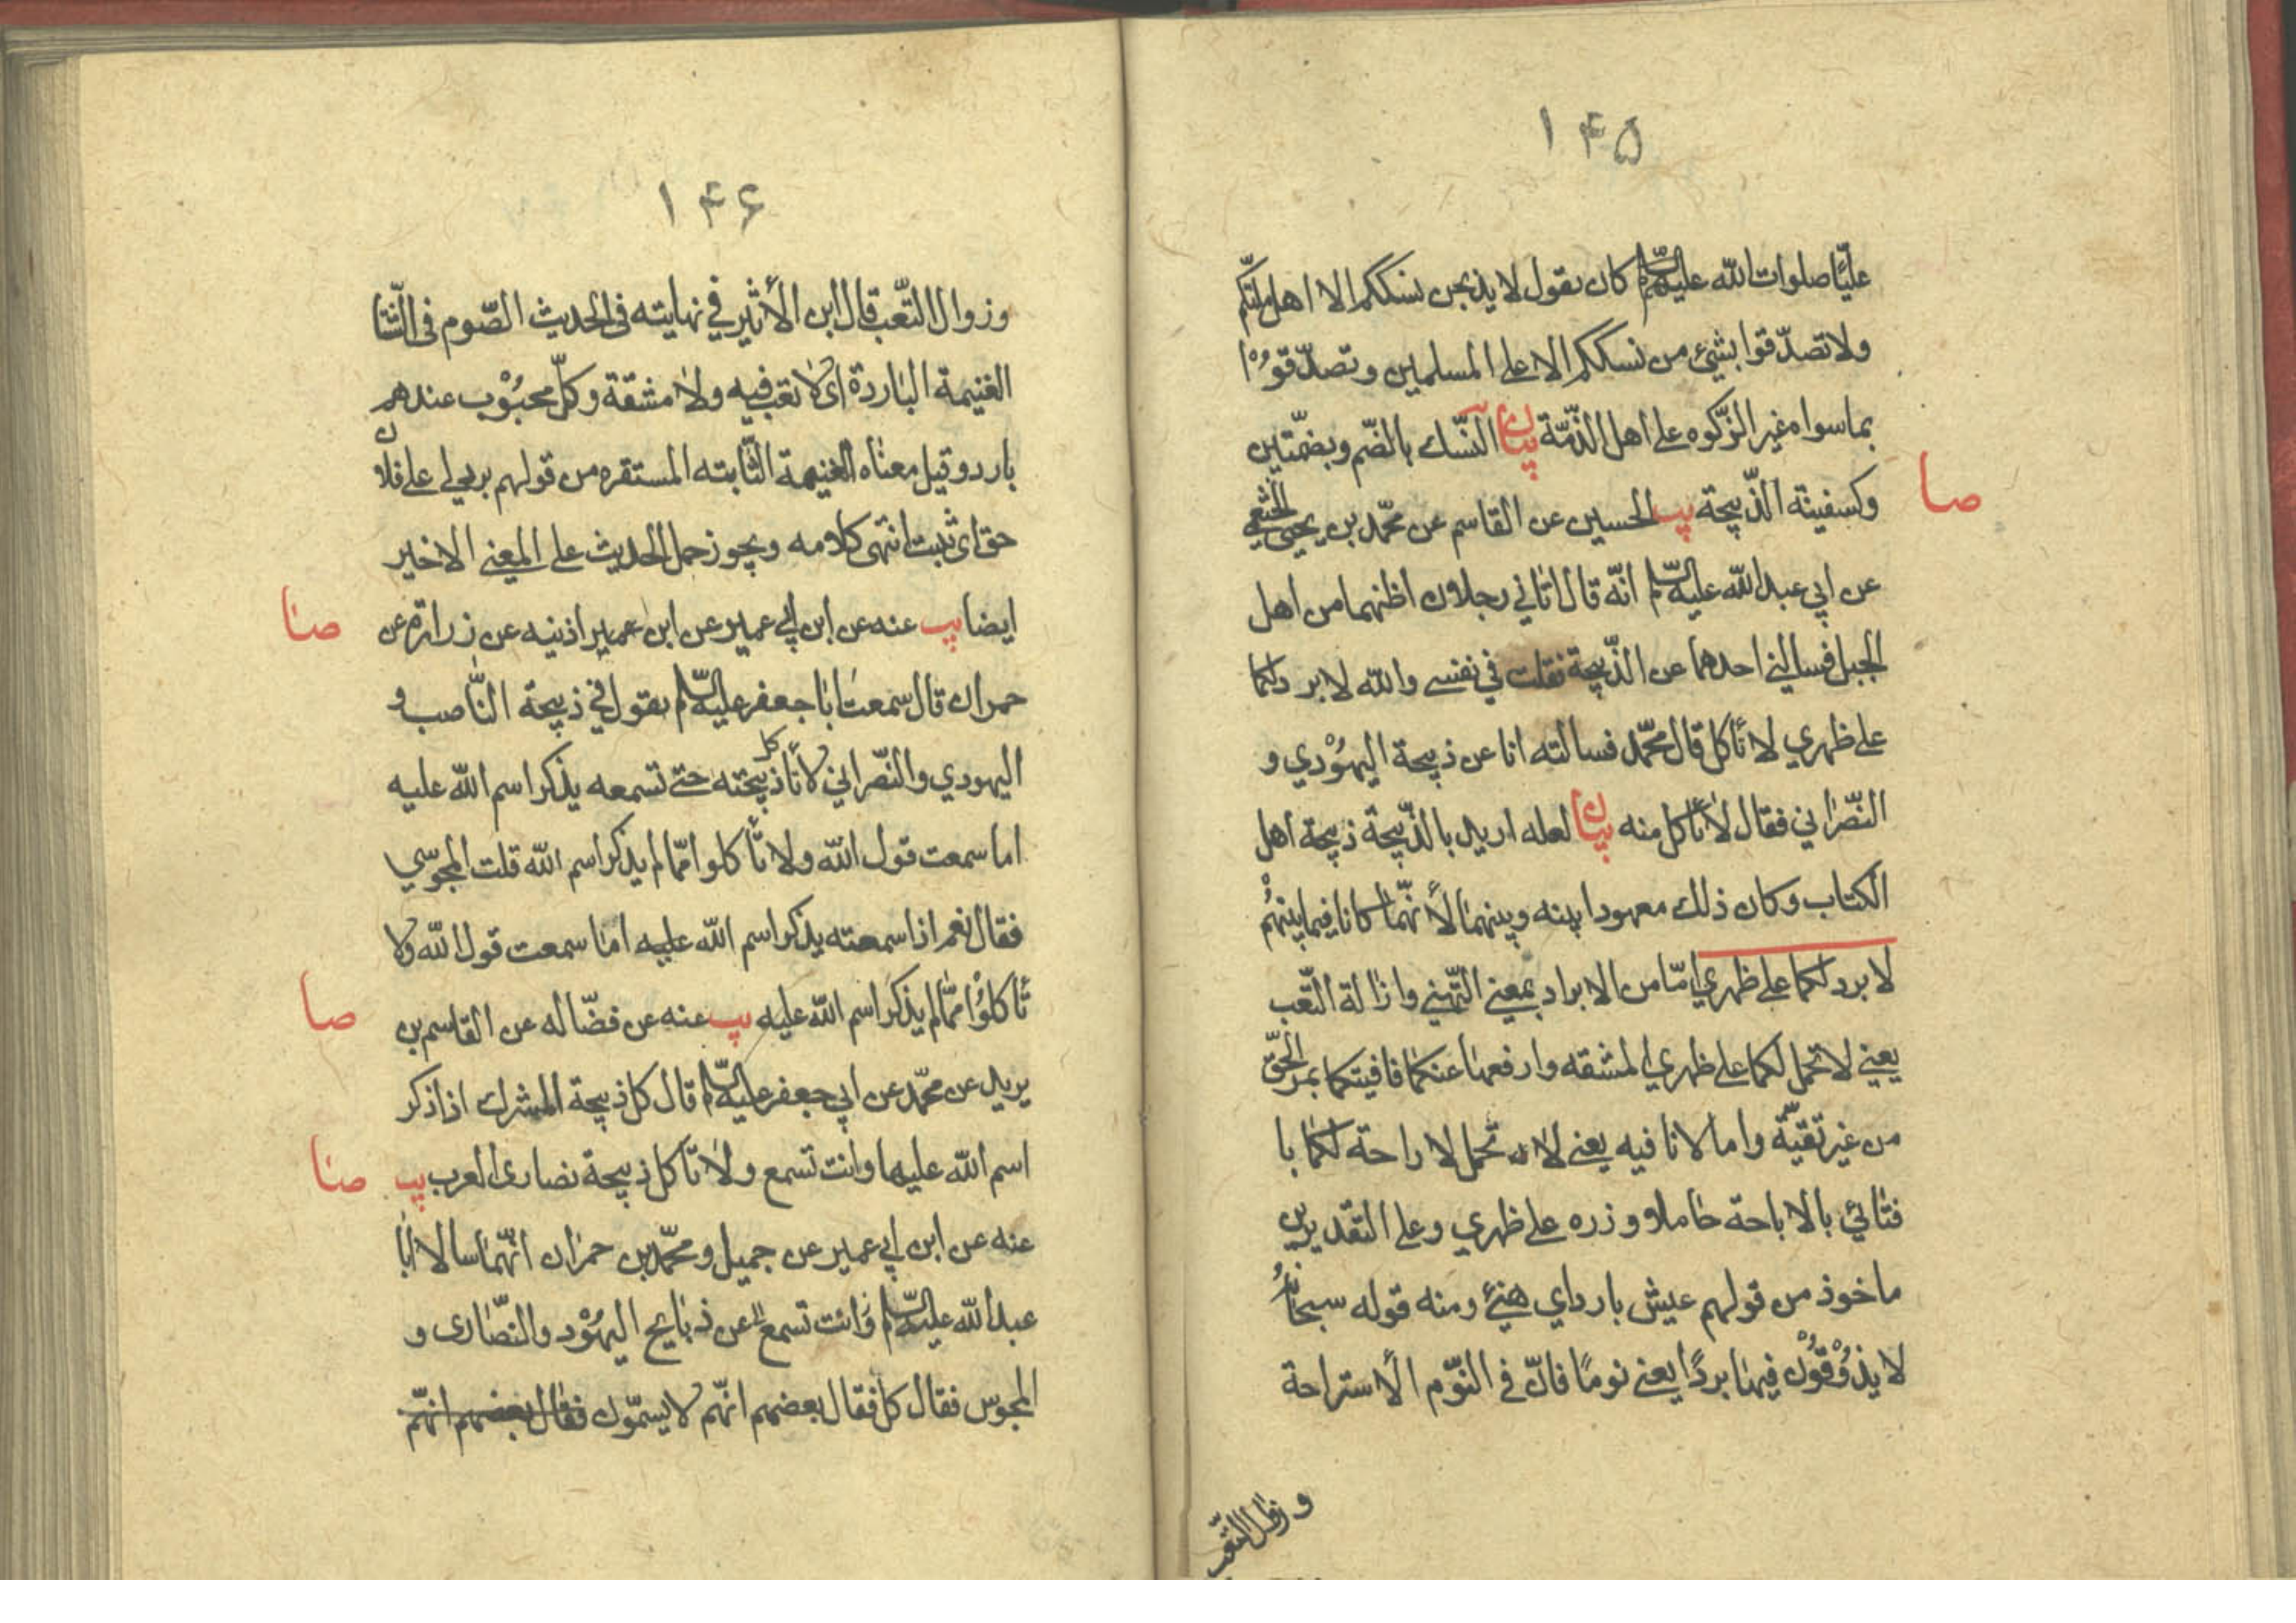 ١۴۵
عليّا صلوات الله عليهم كان يقول لا يذبحن نسككم الا اهل ملتكم
ولا تصدّقوا بشئ من نسككم الا على المسلمين وتصدّقوْا
بما سواه غير الزّكوه على اهل الذّمّة بيان النّسك بالضّم وبضمّتين
صا
وكسفينته الذّبيحة يب الحسين عن القاسم عن محمّد بن يحيى الخثعمي
عن ابي عبد الله عليه السّلم انّه قال اتاني رجلان اظنهما من اهل
الجبل فسالني احدهما عن الذّبيحة فقلت في نفسي والله لا برد لكما
على ظهري لا تأكل قال محمّد فسالته انا عن ذبيحة اليهوْدي و
النّصراني فقال لا تأكل منه بيان لعله اريد بالذّبيحة ذبيحة اهل
الكتاب وكان ذلك معهودا بينه وبينهما لأنّهما كانا فيما بينهُمْ
لا برد لكما على ظهري امّا من الابراد بمعنى التّهني وازالة التّعب
يعني لا تحمل لكما على ظهري المشقه وارفعها عنكما فافيتكما بمر الحقّ
من غير تقيّة واما لا نافيه يعنى لا تحمل لا راحة لكما با
فتائي بالاباحة حاملا وزره على ظهري وعلى التقديرين
ماخوذ من قولهم عيش بارد اي هنئ ومنه قوله سبحانهُ
لا يذوْقوُن فيها بردًا يعنى نومًا فانّ في النّوم الأستراحة
وزوال التّعب
١۴۶
وزوال التّعب قال ابن الأثير في نهايته فى الحديث الصّوم فى الشّتا
الغنيمة الباردة اى لا تعب فيه ولا مشقة وكلّ محبُوْب عندهم
بارد وقيل معناه الغنيمة الثّابته المستقره من قولهم برد لي على فلان
حق اى ثبت انتهى كلامه ويجوز حمل الحديث على المعنى الاخير
صا
ايضا يب عنه عن ابن ابي عمير عن ابن عمير اذينه عن زرارة عن
حمران قال سمعت ابا جعفر عليه السّلم يقول في ذبيحة النّاصب و
اليهودي والنّصراني لا تأكل ذبيحته حتى تسمعه يذكر اسم الله عليه
اما سمعت قول الله ولا تأكلوا ممّا لم يذكر اسم الله قلت المجوسي
فقال نعم اذا سمعته يذكر اسم الله عليه اما سمعت قول الله ولا
صا
تأكلوُا ممّا لم يذكر اسم الله عليه يب عنه عن فضّاله عن القاسم بن
يريد عن محمّد عن ابي جعفر عليه السّلم قال كل ذبيحة المشرك اذا ذكر
صا
اسم الله عليها وانت تسمع ولا تأكل ذبيحة نصارى العرب يب
عنه عن ابن ابي عمير عن جميل ومحمّد بن حمران انّهما سالا ابا
عبد الله عليه السّلم وانت تسمع عن ذبايح اليهوْد والنّصارى و
المجوس فقال كل فقال بعضهم انّهم لا يسمّون فقال بعضهم انّهم